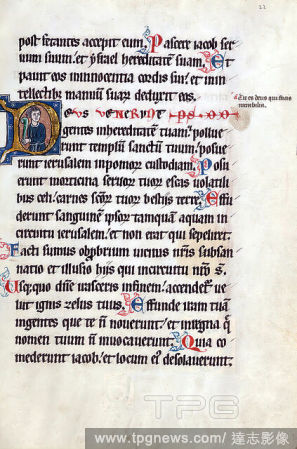 22
post fetantes accepit eum. Pascere iacob ser
uum suum. et ysrael hereditatem suam. Et
pauit eos in innocentia cordis sui. et in
tellectibus manuum suarum deduxit eos.
Deus venerunt
gentes in hereditatem tuam. pollue
runt templum sanctum tuum. posue
runt ierusalem in pomorum custodiam. Posu
erunt morticina seruorum tuorum escas uolatili
bus celi. carnes sanctorum tuorum bestiis terre. Effu
derunt sanguinem ipsorum tamquam aquam in
circuitu ierusalem. et non erat qui sepeliret.
Facti sumus obprobrium uicinis nostris subsan
natio et illusio hiis qui in circuitu nostro sunt.
Usquequo domine irasceris in finem. accendetur ue
lut ignis zelus tuus. Effunde iram tuam
in gentes que te non nouerunt. et in regna que
nomen tuum non inuocauerunt. Quia co
mederunt iacob. et locum eius desolauerunt.
TPG
www.tpgnews.com/ 達志影像